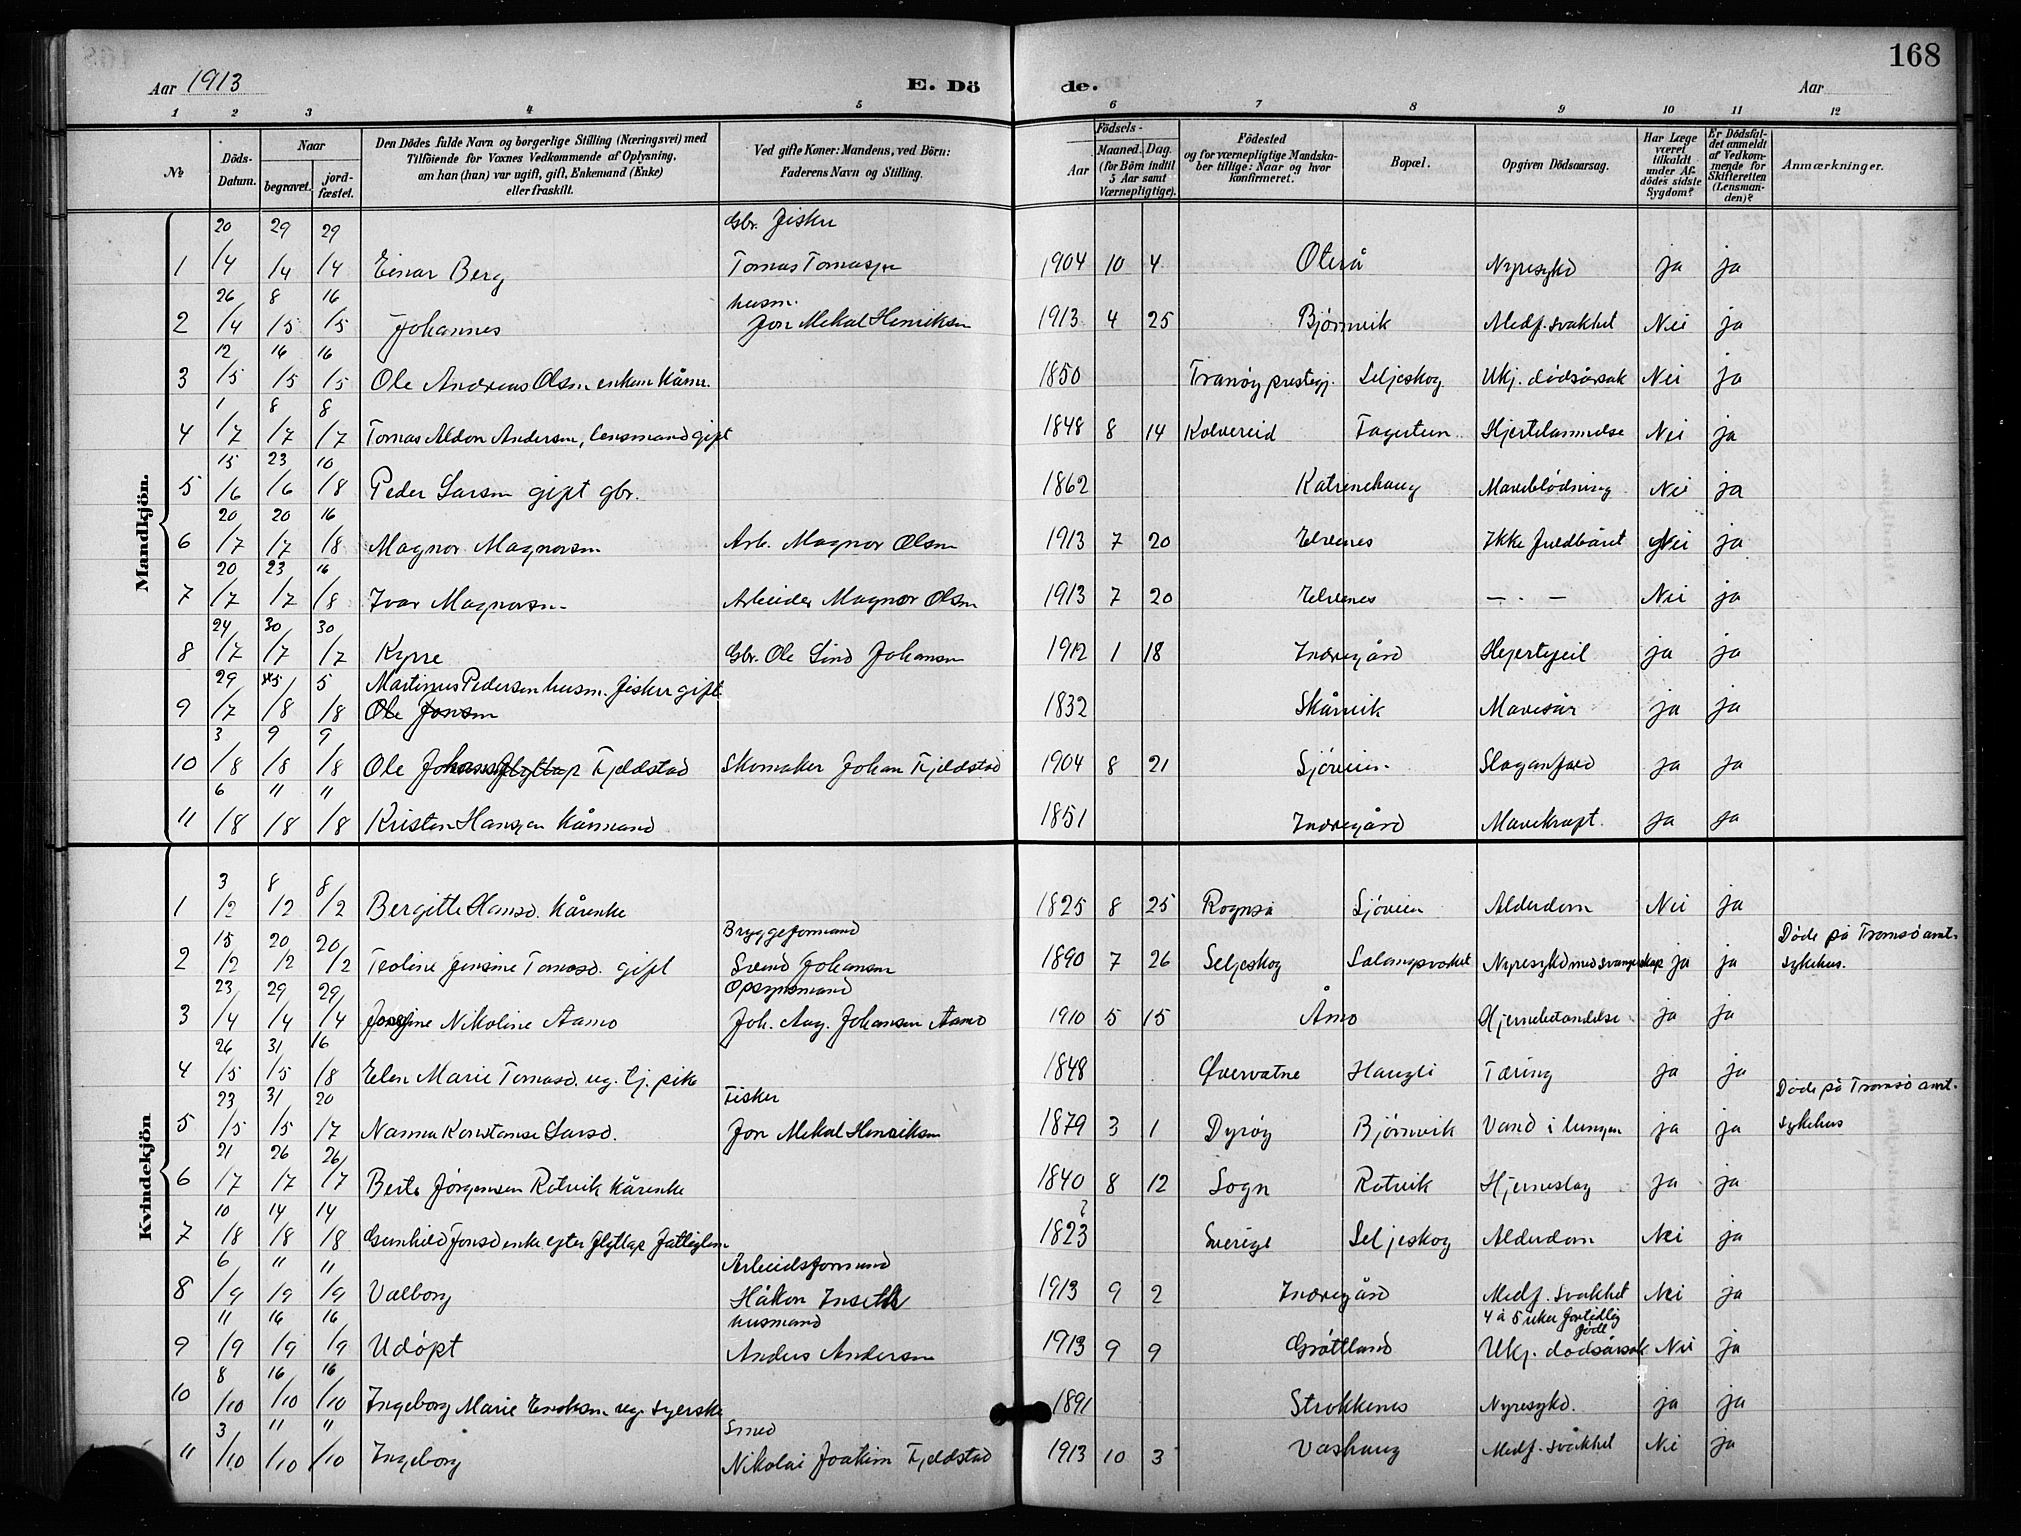 168
Aar 1913 E. Dö de. Aar
1 2 3 4 5 6 7 8 9 10 11 12
No
Döds-Datum.
Naar
begravet.
jord-fæstet.
Den Dödes fulde Navn og borgerlige Stilling (Næringsvei) med Tilföiende for Voxnes Vedkommende af Oplysning, om han (hun) var ugift, gift, Enkemand (Enke) eller fraskilt.
Ved gifte Koner: Mandens, ved Börn: Faderens Navn og Stilling.
Födsels-
Aar
Maaned. Dag.
(for Börn indtil 5 Aar samt Værnepligtige).
Födested og for værnepligtige Mandska-ber tillige: Naar og hvor konfirmeret.
Bopæl.
Opgiven Dödsaarsag.
Har Læge været tilkaldt under Af-dödes sidste Sygdom?
Er Dödsfal-det anmeldt af Vedkom-mende for Skifteretten (Lensman-den)?
Anmærkninger.
Mandkjön.
1 20/4 29/4 29/4 Einar Berg Gbr. fisker Tomas Tomassen 1904 10 4 Oterå Nyresykd ja ja
2 26/4 8/5 16/5 Johannes husm. Jon Mekal Henriksen 1913 4 25 Bjørnvik Medf. svakhet Nei ja
3 12/5 16/5 16/5 Ole Andreas Olsen enkem. kårm. 1850 Tranøy prestegj. Seljeskog Ukj. dødsårsak Nei ja
4 1/7 8/7 8/7 Tomas Aldon Andersen, lensmand gift 1848 8 14 Kolvereid Fagerteen Hjertelammelse Nei ja
5 15/6 23/6 10/8 Peder Larsen gift gbr. 1862 Katrinehaug Maveblødning Nei ja
6 20/7 20/7 16/8 Magnor Magnorsen Arb. Magnor Olsen 1913 7 20 Elvenes Ikke fuldbåret Nei ja
7 20/7 23/7 16/8 Ivar Magnorsen Arbeider Magnor Olsen 1913 7 20 Elvenes — . — Nei ja
8 24/7 30/7 30/7 Kyrre Gbr. Ole Lind Johansen 1912 1 18 Indregård Hjertefeil ja ja
9 29/7 5/8 5/8 Martinus Pedersen husm. fisker gift Ole Jonsen 1832 Skårvik Mavesår ja ja
10 3/8 9/8 9/8 Ole Johans Flyttap Fjeldstad Skomaker Johan Fjeldstad 1904 8 21 Sjøveien Slaganfald ja ja
11 6/8 11/8 11/8 Kristen Hansen kårmand 1851 Indregård Mavekræft. ja ja
Kvindekjön
1 3/2 8/2 8/2 Bergitte Hansd. kårenke 1825 8 25 Rognså Sjøveien Alderdom Nei ja
2 15/2 20/2 20/2 Teoline Jensine Tomasd. gift Bryggeformand Svend Johansen 1890 7 26 Seljeskog Salangsverket Nyresykd med svangerskap ja ja Døde på Tromsø amt. sykehus.
3 23/4 29/4 29/4 Josefine Nikoline Aamo Opsynsmand Joh. Aug. Johansen Aamo 1910 5 15 Åmo Hjernebetændelse ja ja
4 26/5 31/5 16/8 Elen Marie Tomasd. ug. tj. pike 1848 Øvervatne Haugli Tæring ja ja
5 23/5 31/5 20/7 Nanna Konstanse Larsd. Fisker Jon Mekal Henriksen 1879 3 1 Dyrøy Bjørnvik Vand i lungen ja ja Døde på Tromsø amt. sykehus
6 21/7 26/7 26/7 Berte Jørgensen Rotvik kårenke 1840 8 12 Sogn Rotvik Hjerneslag ja ja
7 10/8 14/8 14/8 Gunhild Jonsd enke efter flyttap fattiglem 1823 ? Sverige Seljeskog Alderdom Nei ja
8 6/9 11/9 11/9 Valborg Arbeidsformand Håkon Inseth 1913 9 2 Indregård Medf. svakhet 4 à 5 uker fortidlig født Nei ja
9 11/9 16/9 16/9 Udöpt husmand Anders Andersen 1913 9 9 Grøttland Ukj. dødsårsak Nei ja
10 8/10 16/10 16/10 Ingeborg Marie Eriksen ug. syerske 1891 Strokkenes Nyresykd. ja ja
11 3/10 11/10 11/10 Ingeborg Smed Nikolai Joakim Fjeldstad 1913 10 3 Vashaug Medf. svakhet Nei ja